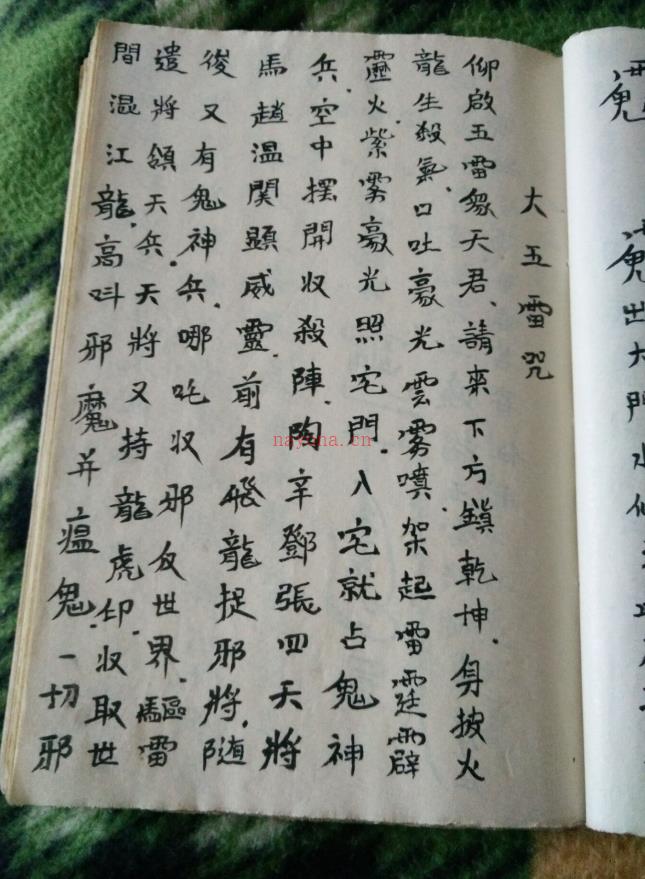 大五雷咒
仰啟五雷眾天君、請來下方鎮乾坤、身披火
龍生殺氣、口吐豪光雲雾噴、架起雷霆霹
靈火、紫雾豪光照宅門、入宅就占鬼神
兵、空中擺開収殺陣、陶辛鄧張四天將
馬趙温関顕威靈、前有飛龍捉邪將、随
後又有鬼神兵、哪吒収邪反世界、驅雷
遣將領天兵、天將又持龍虎印、収取世
間混江龍、高呌邪魔并瘟鬼、一切邪
出大門水
nayona.cn